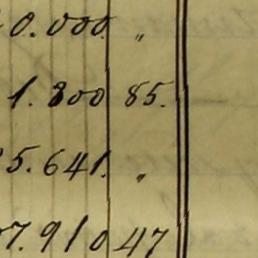 0.000. "
1.800 85.
5.641. "
7.910 47